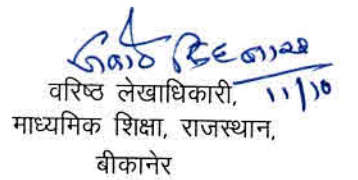 11/10
वरिष्ठ लेखाधिकारी,
माध्यमिक शिक्षा, राजस्थान,
बीकानेर